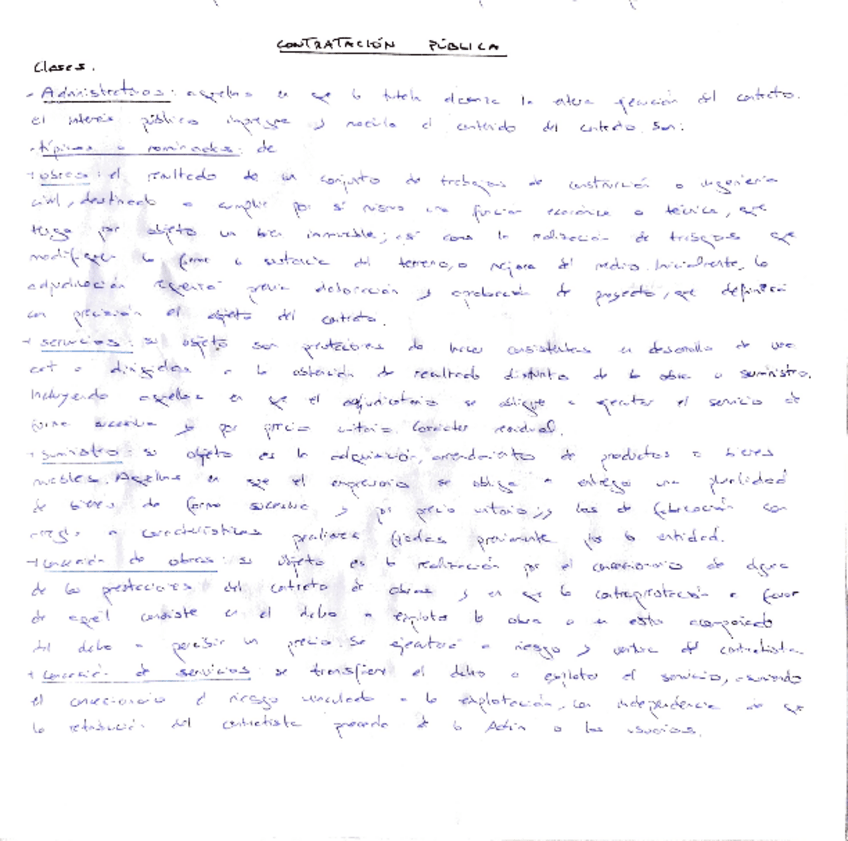 CONTRATACIÓN PÚBLICA
Clases.
- Administrativos: aquellos en que la tutela alcanza la entera ejecución del contrato.
El interés público impregna y modula el contenido del contrato. Son:
- típicos o nominados: de
+ obras: el resultado de un conjunto de trabajos de construcción o ingeniería
civil, destinado a cumplir por sí mismo una función económica o técnica, que
tenga por objeto un bien inmueble; así como la realización de trabajos que
modifiquen la forma o sustancia del terreno, o mejora del medio. Inicialmente, la
adjudicación requerirá previa elaboración y aprobación de proyecto, que definirá
con precisión el objeto del contrato.
+ servicios: su objeto son prestaciones de hacer consistentes en desarrollo de una
act o dirigidas a la obtención de resultado distinto de la obra o suministro.
Incluyendo aquellos en que el adjudicatario se obligue a ejecutar el servicio de
forma sucesiva y por precio unitario. Carácter residual.
+ suministro: su objeto es la adquisición, arrendamiento de productos o bienes
muebles. Aquellos en que el empresario se obliga a entregar una pluralidad
de bienes de forma sucesiva y por precio unitario; y los de fabricación con
arreglo a características peculiares fijadas previamente por la entidad.
+ Concesión de obras: su objeto es la realización por el concesionario de alguna
de las prestaciones del contrato de obras y en que la contraprestación a favor
de aquel consiste en el dcho a explotar la obra o en este acompañado
del dcho a percibir un precio. Se ejecutará a riesgo y ventura del contratista.
+ Concesión de servicios: se transfiere el dcho a explotar el servicio, asumiendo
el concesionario el riesgo vinculado a la explotación, con independencia de que
la retribución del contratista proceda de la Admin o los usuarios.